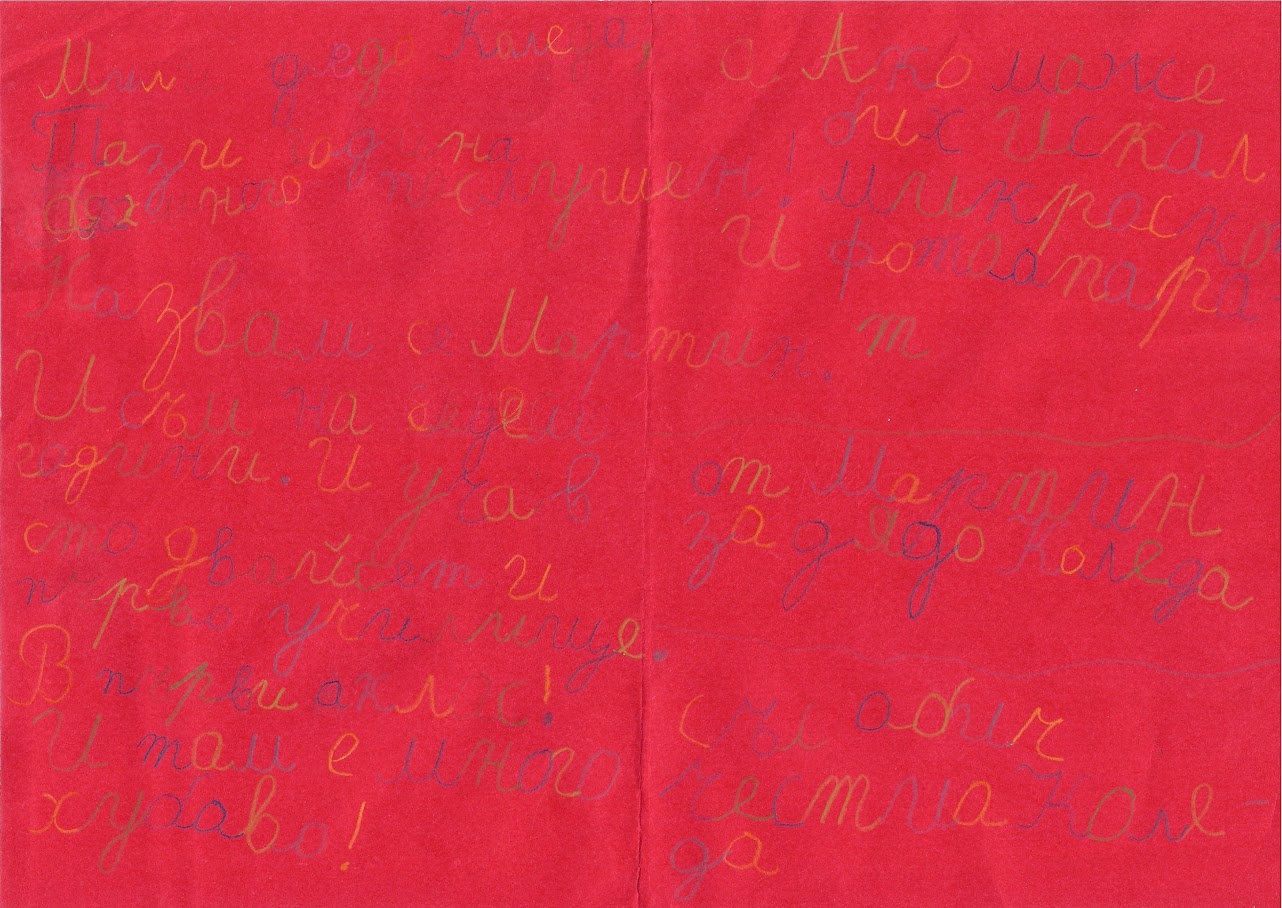 Мили дядо Коледа,
Тази година
бях много послушен!
Казвам се Мартин.
И съм на седем
години. И уча в
сто двайсет и
първо училище.
В първи а клас!
И там е много
хубаво!
а Ако може
бих искал
микроско
И фотоапара-
т
от Мартин
за дядо Коледа
съ обич
честита Коле-
да